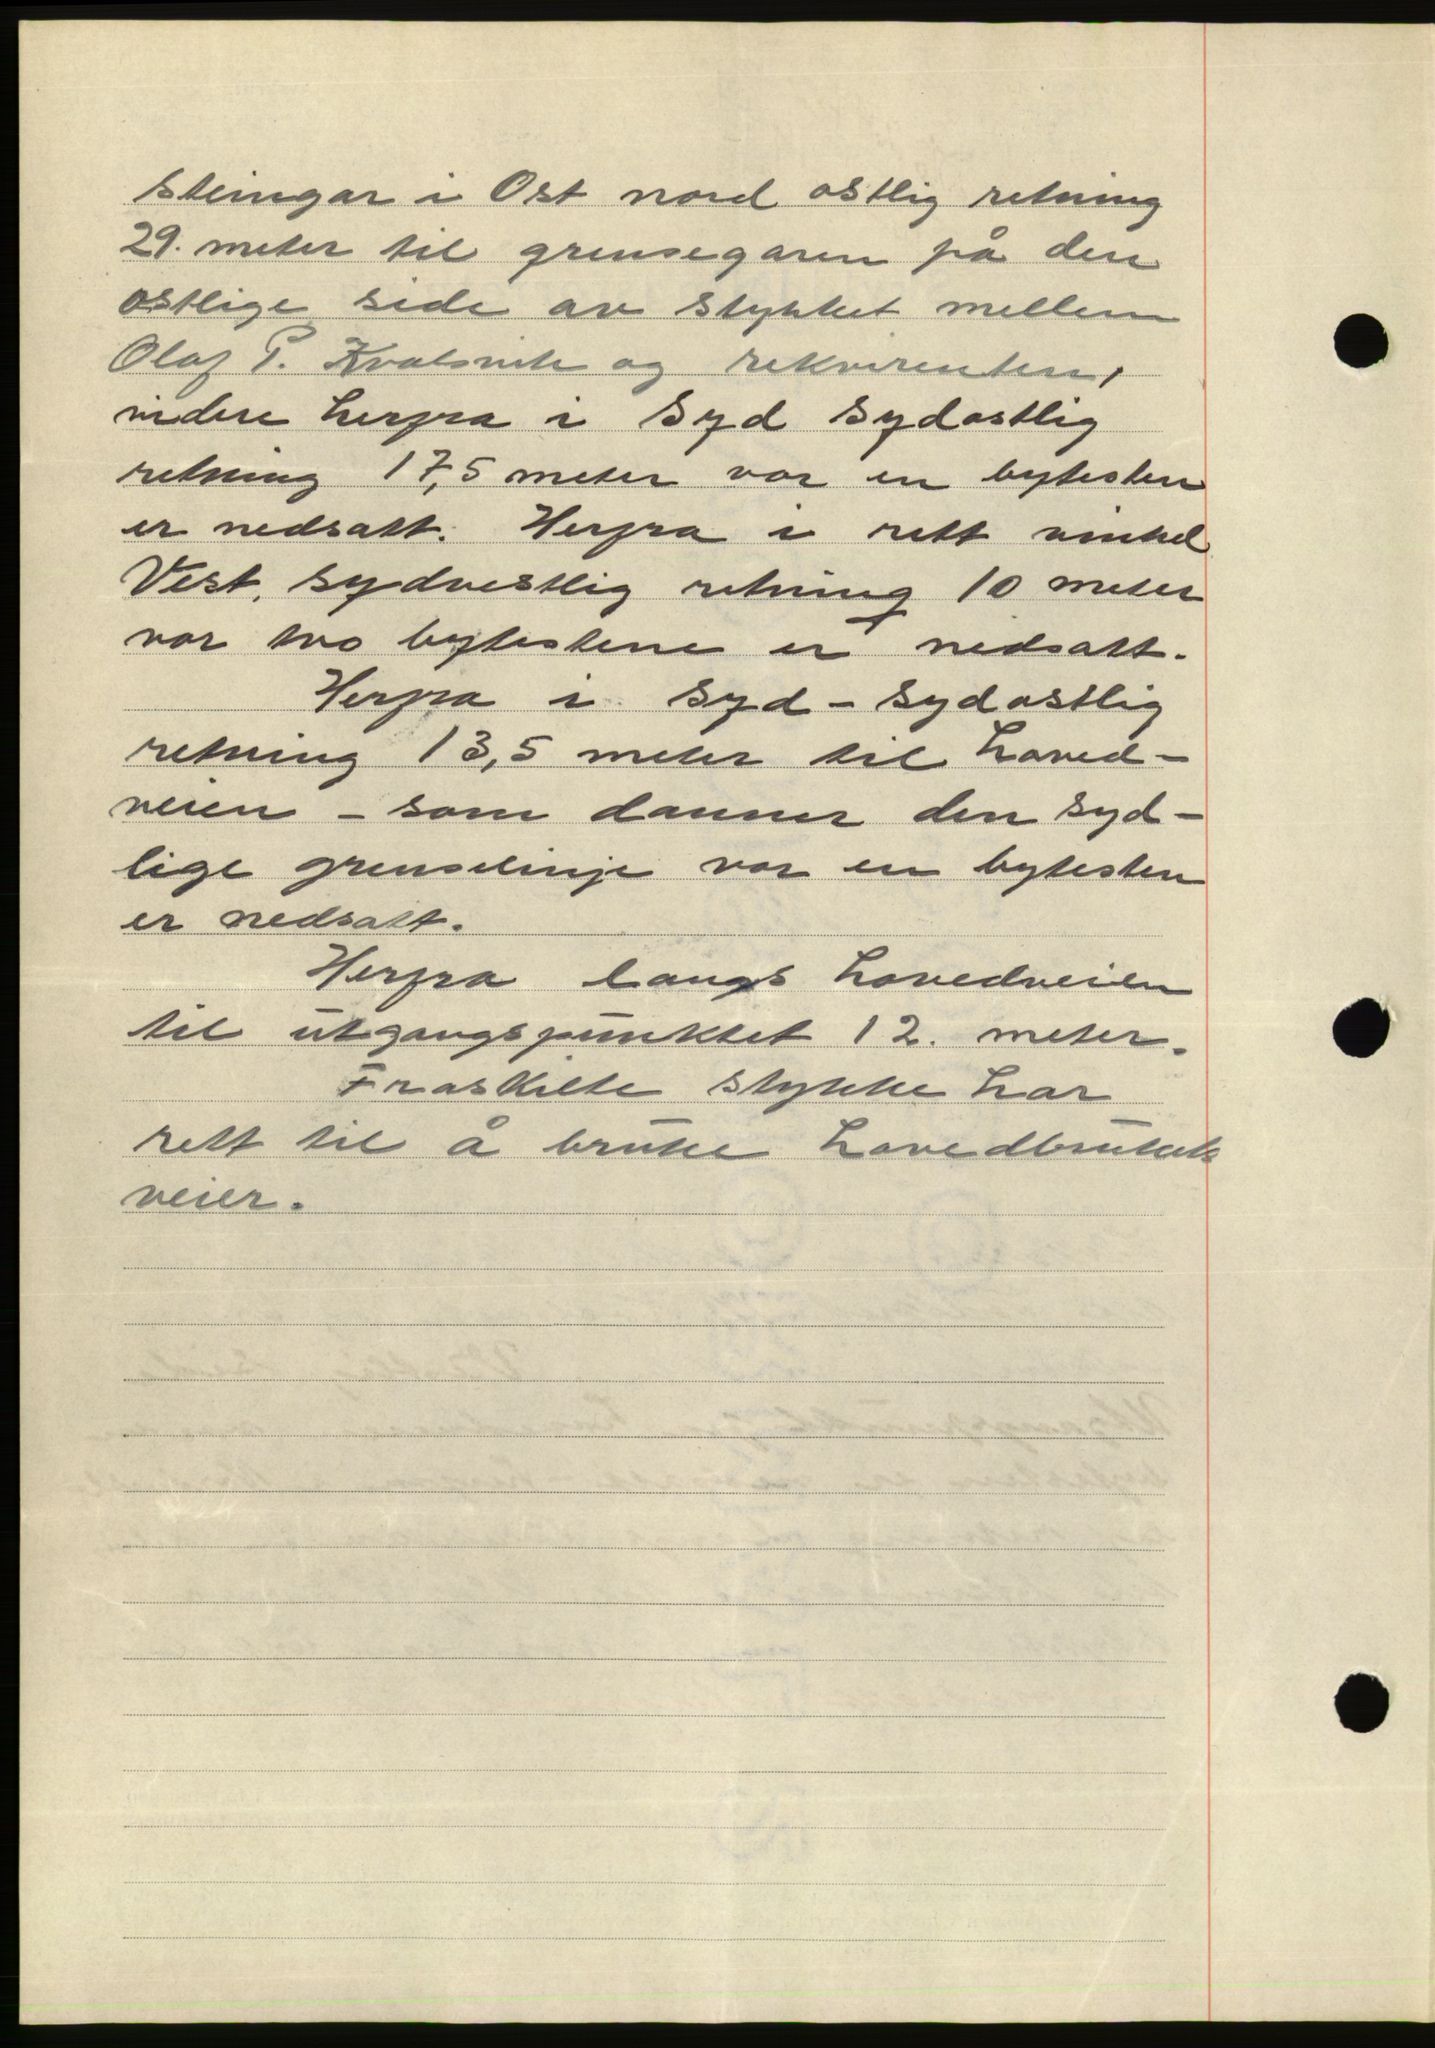 steingar i Ost nord ostlig retning
29. meter til grensegaren på den
ostlige side av stykket mellem
Olaf P. Kvalsvik og rekvirenten,
videre herfra i Syd Sydostlig
retning 17,5 meter vor en bytesten
er nedsatt. Herfra i rett vinkel
Vest. sydvestlig retning 10 meter
vor tvo bytestene er nedsatt.
Herfra i Syd - Sydostlig
retning 13,5 meter til hoved-
veien - som danner den syd-
lige grenselinje vor en bytesten
er nedsatt.
Herfra langs hovedveien
til utgangspunktet 12. meter.
Fraskilte stykke har
rett til å bruke hovedbrukets
veier.